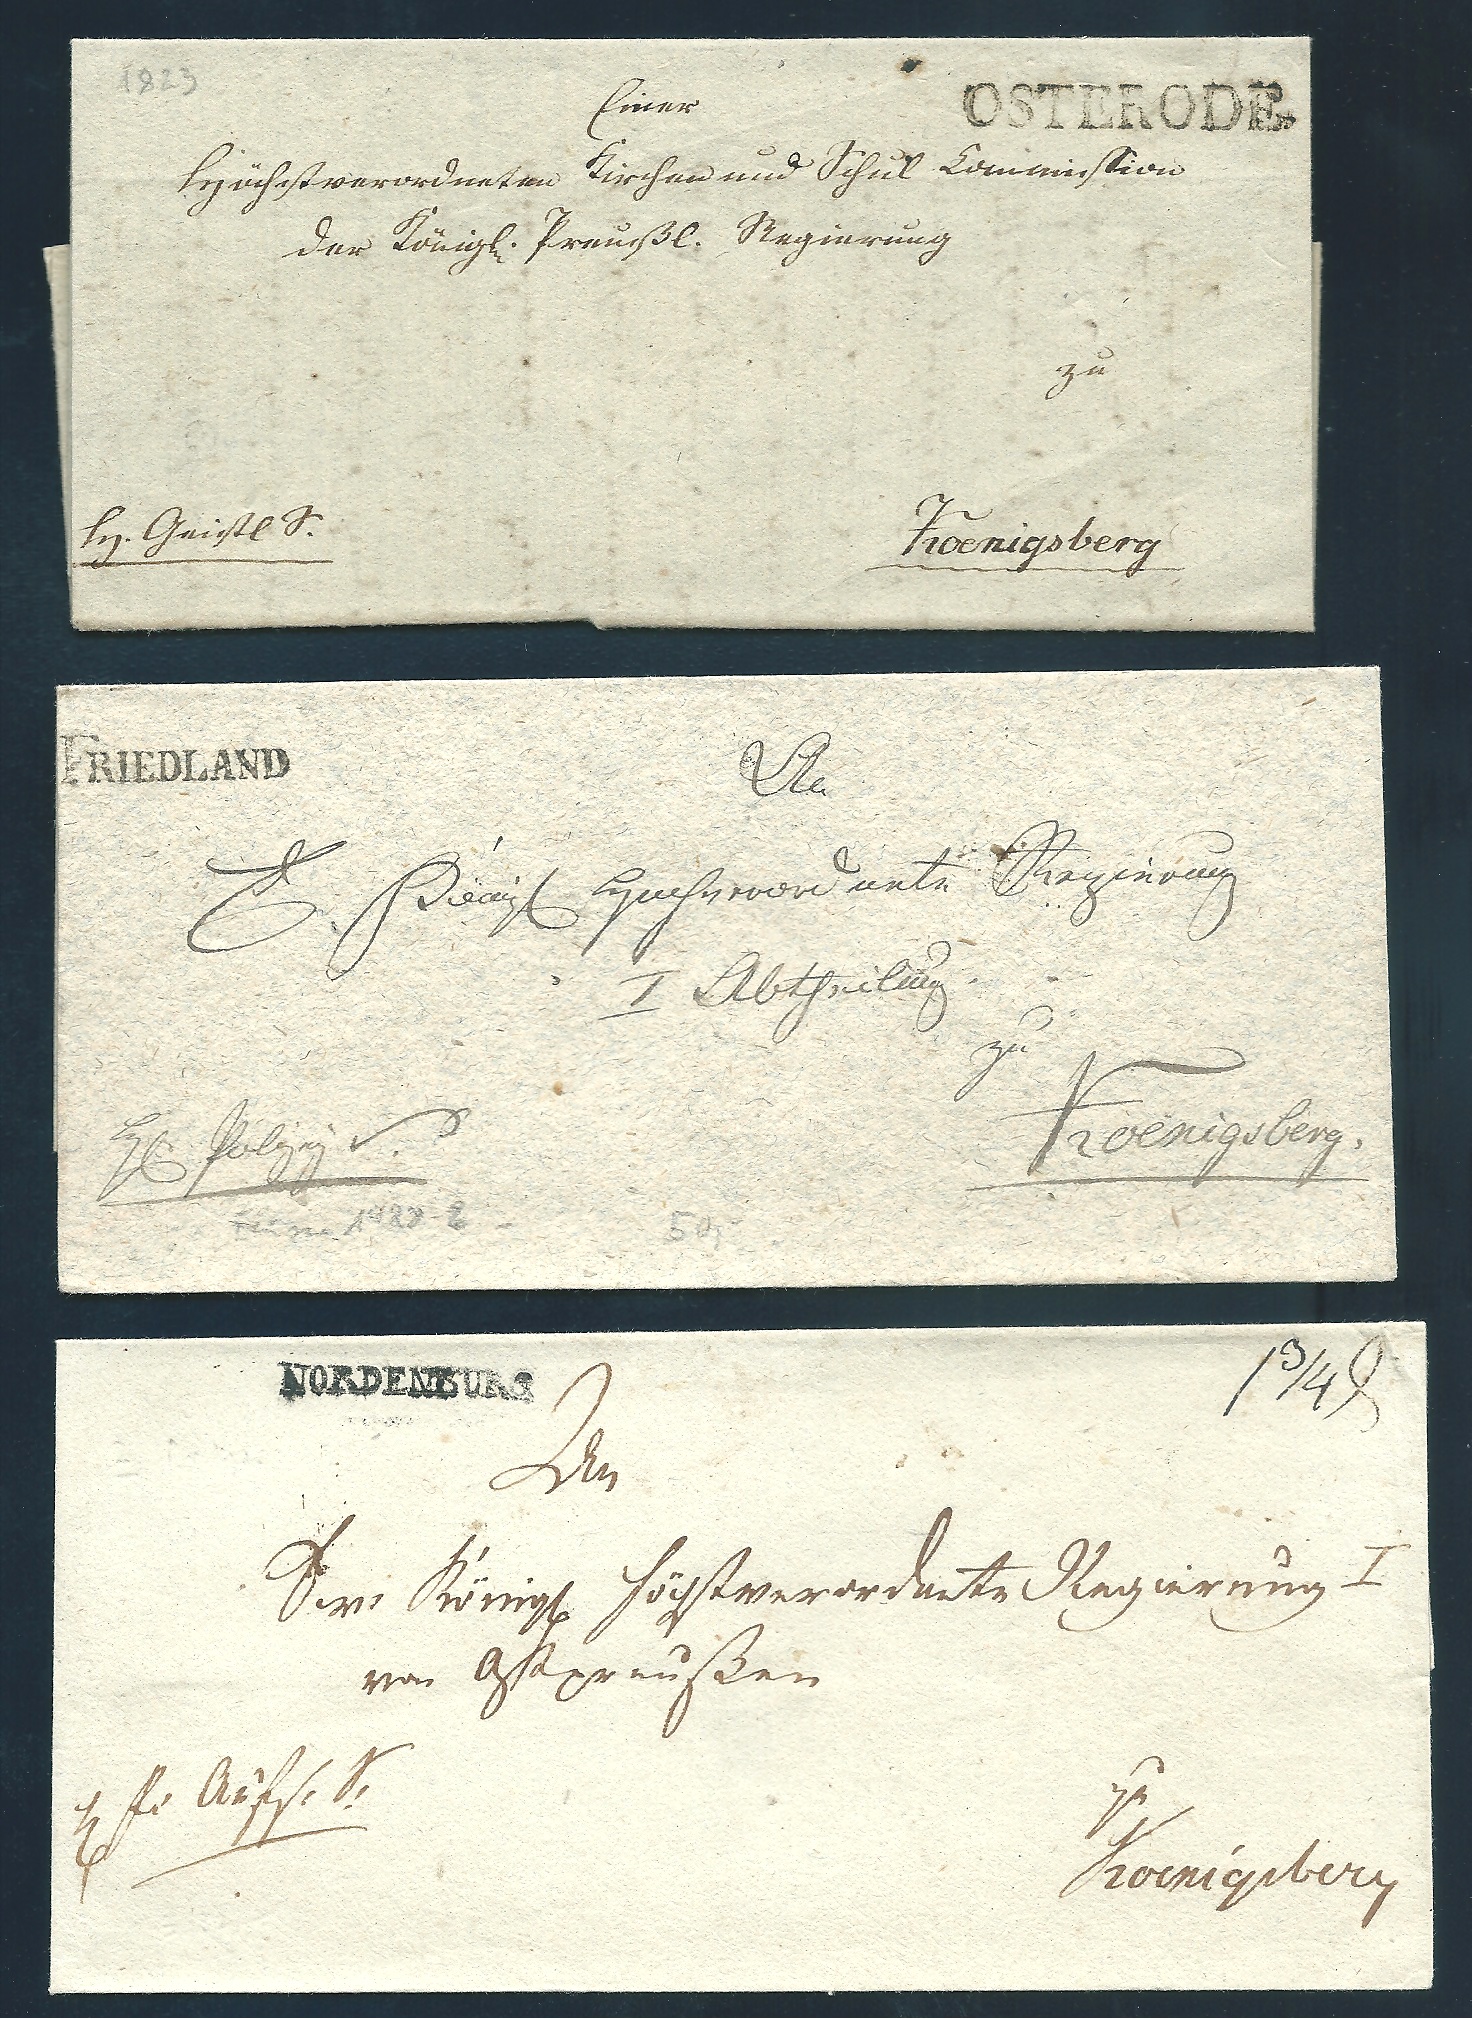 1823
OSTERODE.
Einer
Höchstverordneten Kirchen und Schul Commission
der Königl. Preußl. Regierung
zu
Hz. Geistl S.
Koenigsberg
FRIEDLAND
An
E. Königl Hochverordnete Regierung
I Abtheilung
zu
Koenigsberg.
Polizey S.
50,-
NORDENBURG
1 3/4
An
Königl höchstverordnete Regierung I
von Ostpreußen
zu
Koenigsberg